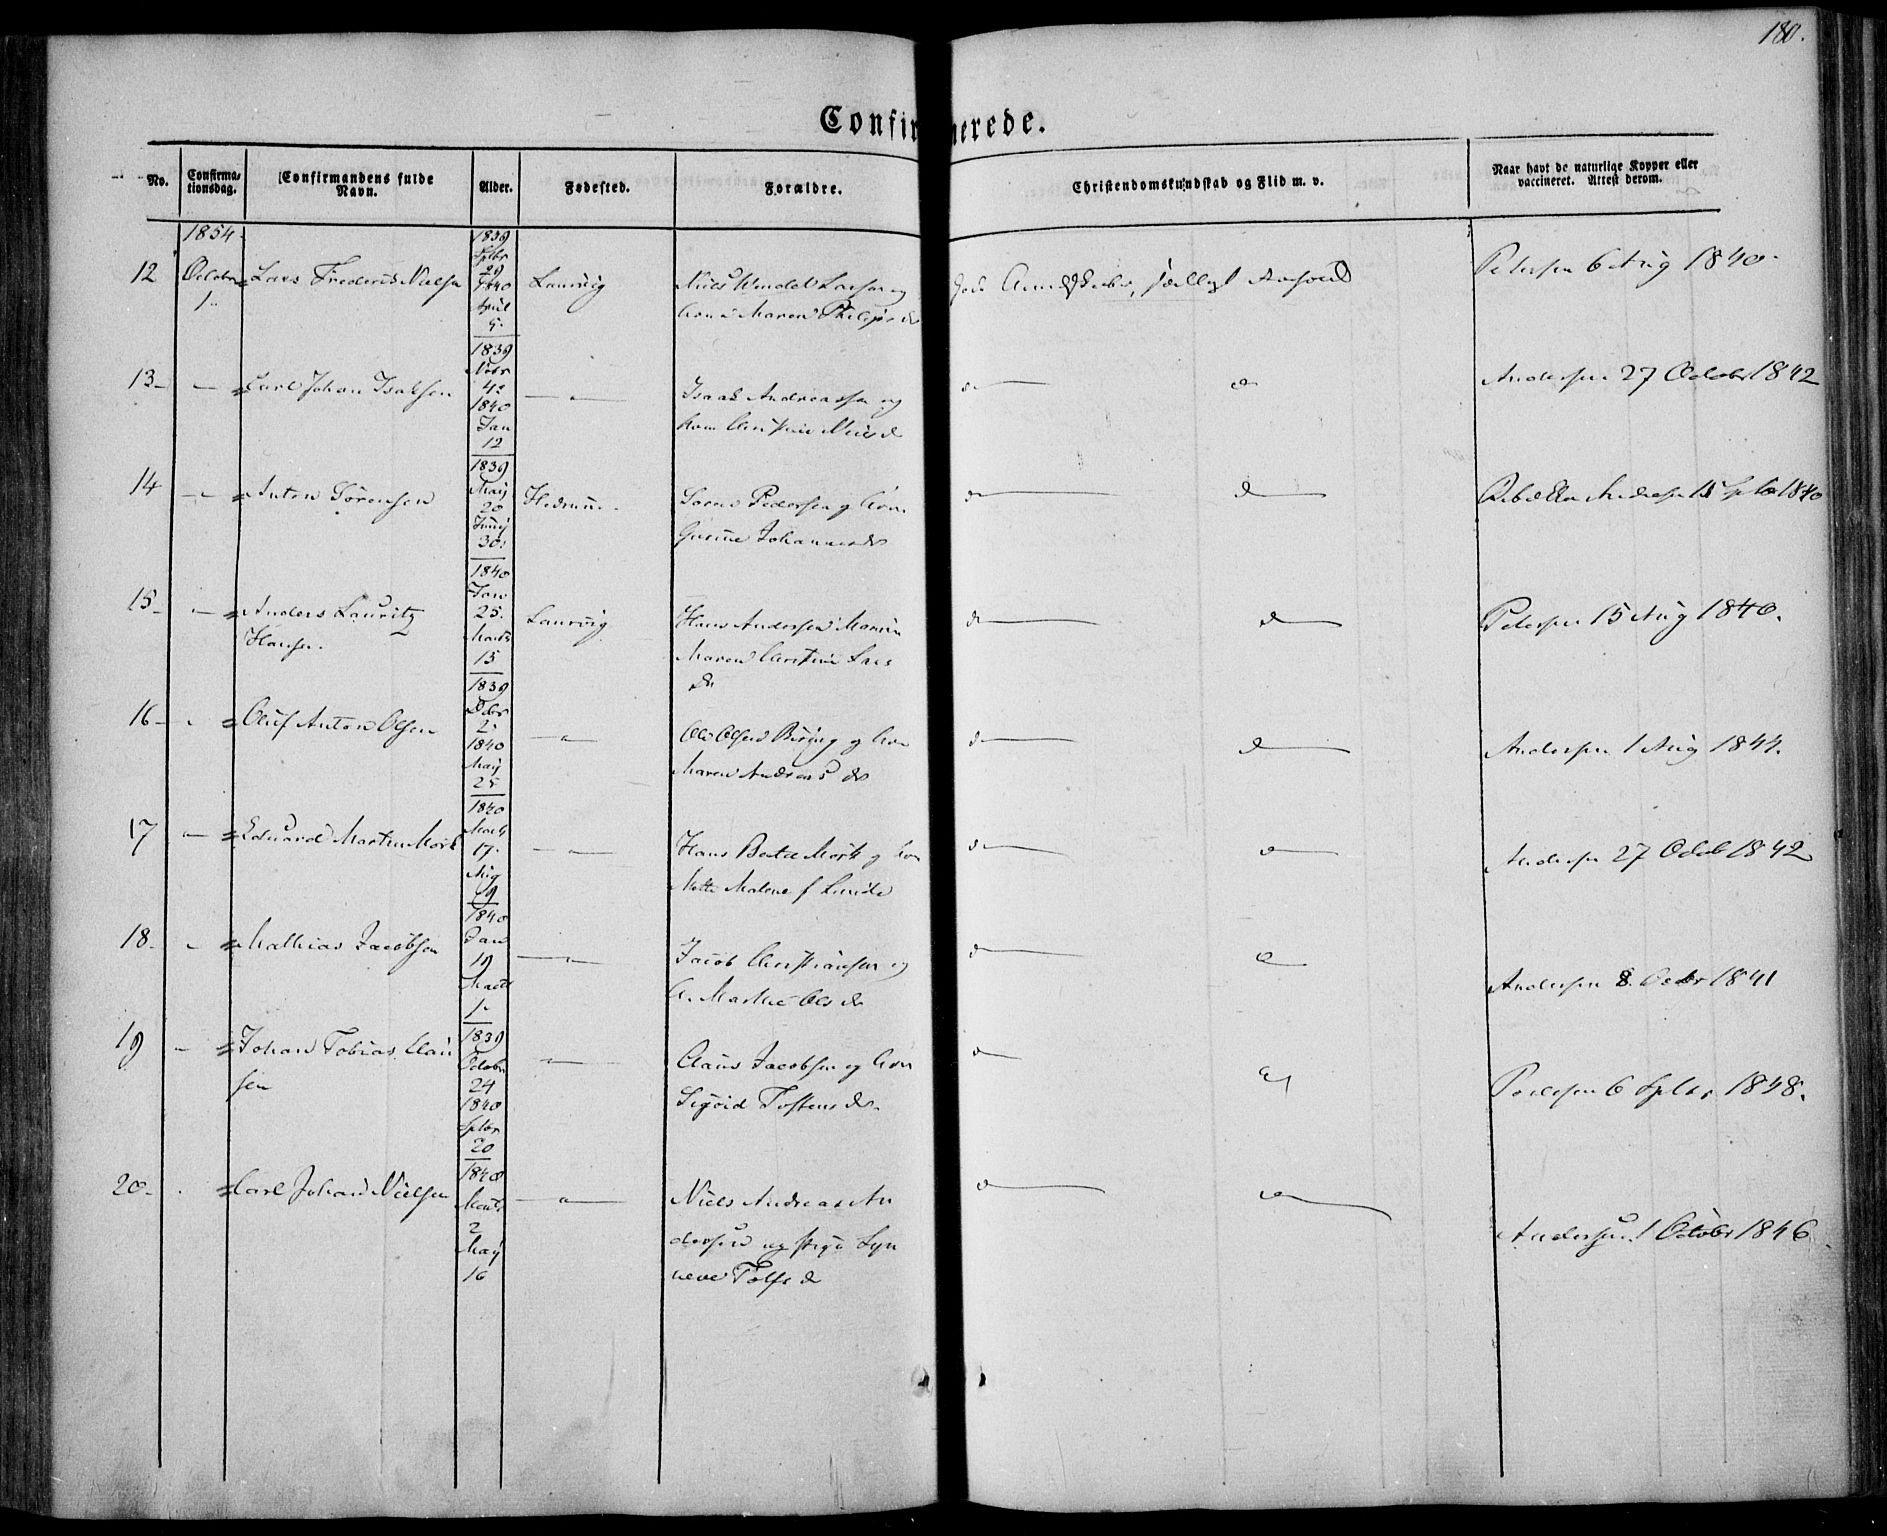 180.
Confirmerede.
No.
Confirma-
tionsdag.
Confirmandens fulde
Navn.
Alder.
Fødested.
Forældre.
Christendomskundskab og Flid m. v.
Naar havt de naturlige Kopper eller
vaccineret. Attest derom.
1854
12
Octobr
1
Lars Frederik Nielsen
1839
Sptbr
29
1840
April
5
Laurvig
Niels Wendel Larsen og
Kone Maren Philips D
gode Kundskaber, sædeligt Forhold
Petersen 6 Aug 1840
13
Carl Johan Isaksen
1839
Nvbr
4
1840
Jan
12
Isaak Andreassen og
Kone Christine Niels D
Andersen 27 Octobr 1842
14
Anton Sørensen
1839
Maij
20
Junij
30
Hedrum
Søren Pedersen og Kone
Johannes D
15 Sptbr 1840
15
Anders Lauritz
Hansen
1840
Jan
25
Marts
15
Laurvig
Hans Andersen
Maren Christine Lars
D
Petersen 15 Aug 1840.
16
Oluf Anton Olsen
1839
Dcbr
2
1840
Maij
25
Ole Olsen og Kone
Maren Andreas D
Andersen 1 Aug 1844.
17
Edvard Martin Mørk
1840
Marts
17
Aug
9
Hans Mørk og Kone
Mette Malene f Lunde
Andersen 27 Octob 1842
18
Mathias Jacobsen
1840
Jan
19
Marts
1
Jacob Christiansen og
K. Marthe Ols D
Andersen 8 Octbr 1841
19
Johan Tobias Clau
sen
1839
Octobr
24
1840
Sptbr
20
Claus Jacobsen og Kone
Tostens D
Pedersen 6 Sptbr 1848.
20
Carl Johan Nielsen
1840
Marts
2
Maij
16
Niels Andreas An
dersen og pige Syn
neve D
Andersen 1 Octobr 1846